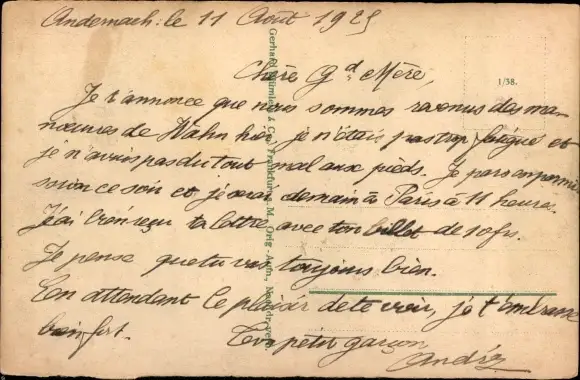 Andernach: le 11 Août 1925
Chère Gd Mère,
1/38.
Je t'annonce que nous sommes revenus des ma-
nœuvres de Hahn hier je n'étais pas trop fatigué et
je n'avais pas du tout mal aux pieds. Je pars en permis
sion ce soir et je serai demain à Paris à 11 heures.
J'ai bien reçu ta lettre avec ton billet de 10 frs.
Je pense que tu vas toujours bien.
En attendant le plaisir de te voir, je t'embrasse
bien fort.
Ton petit garçon
André
Gerhard Blümlein & Co., Frankfurt a. M. Orig.-Aufn., Nachdr. verb.